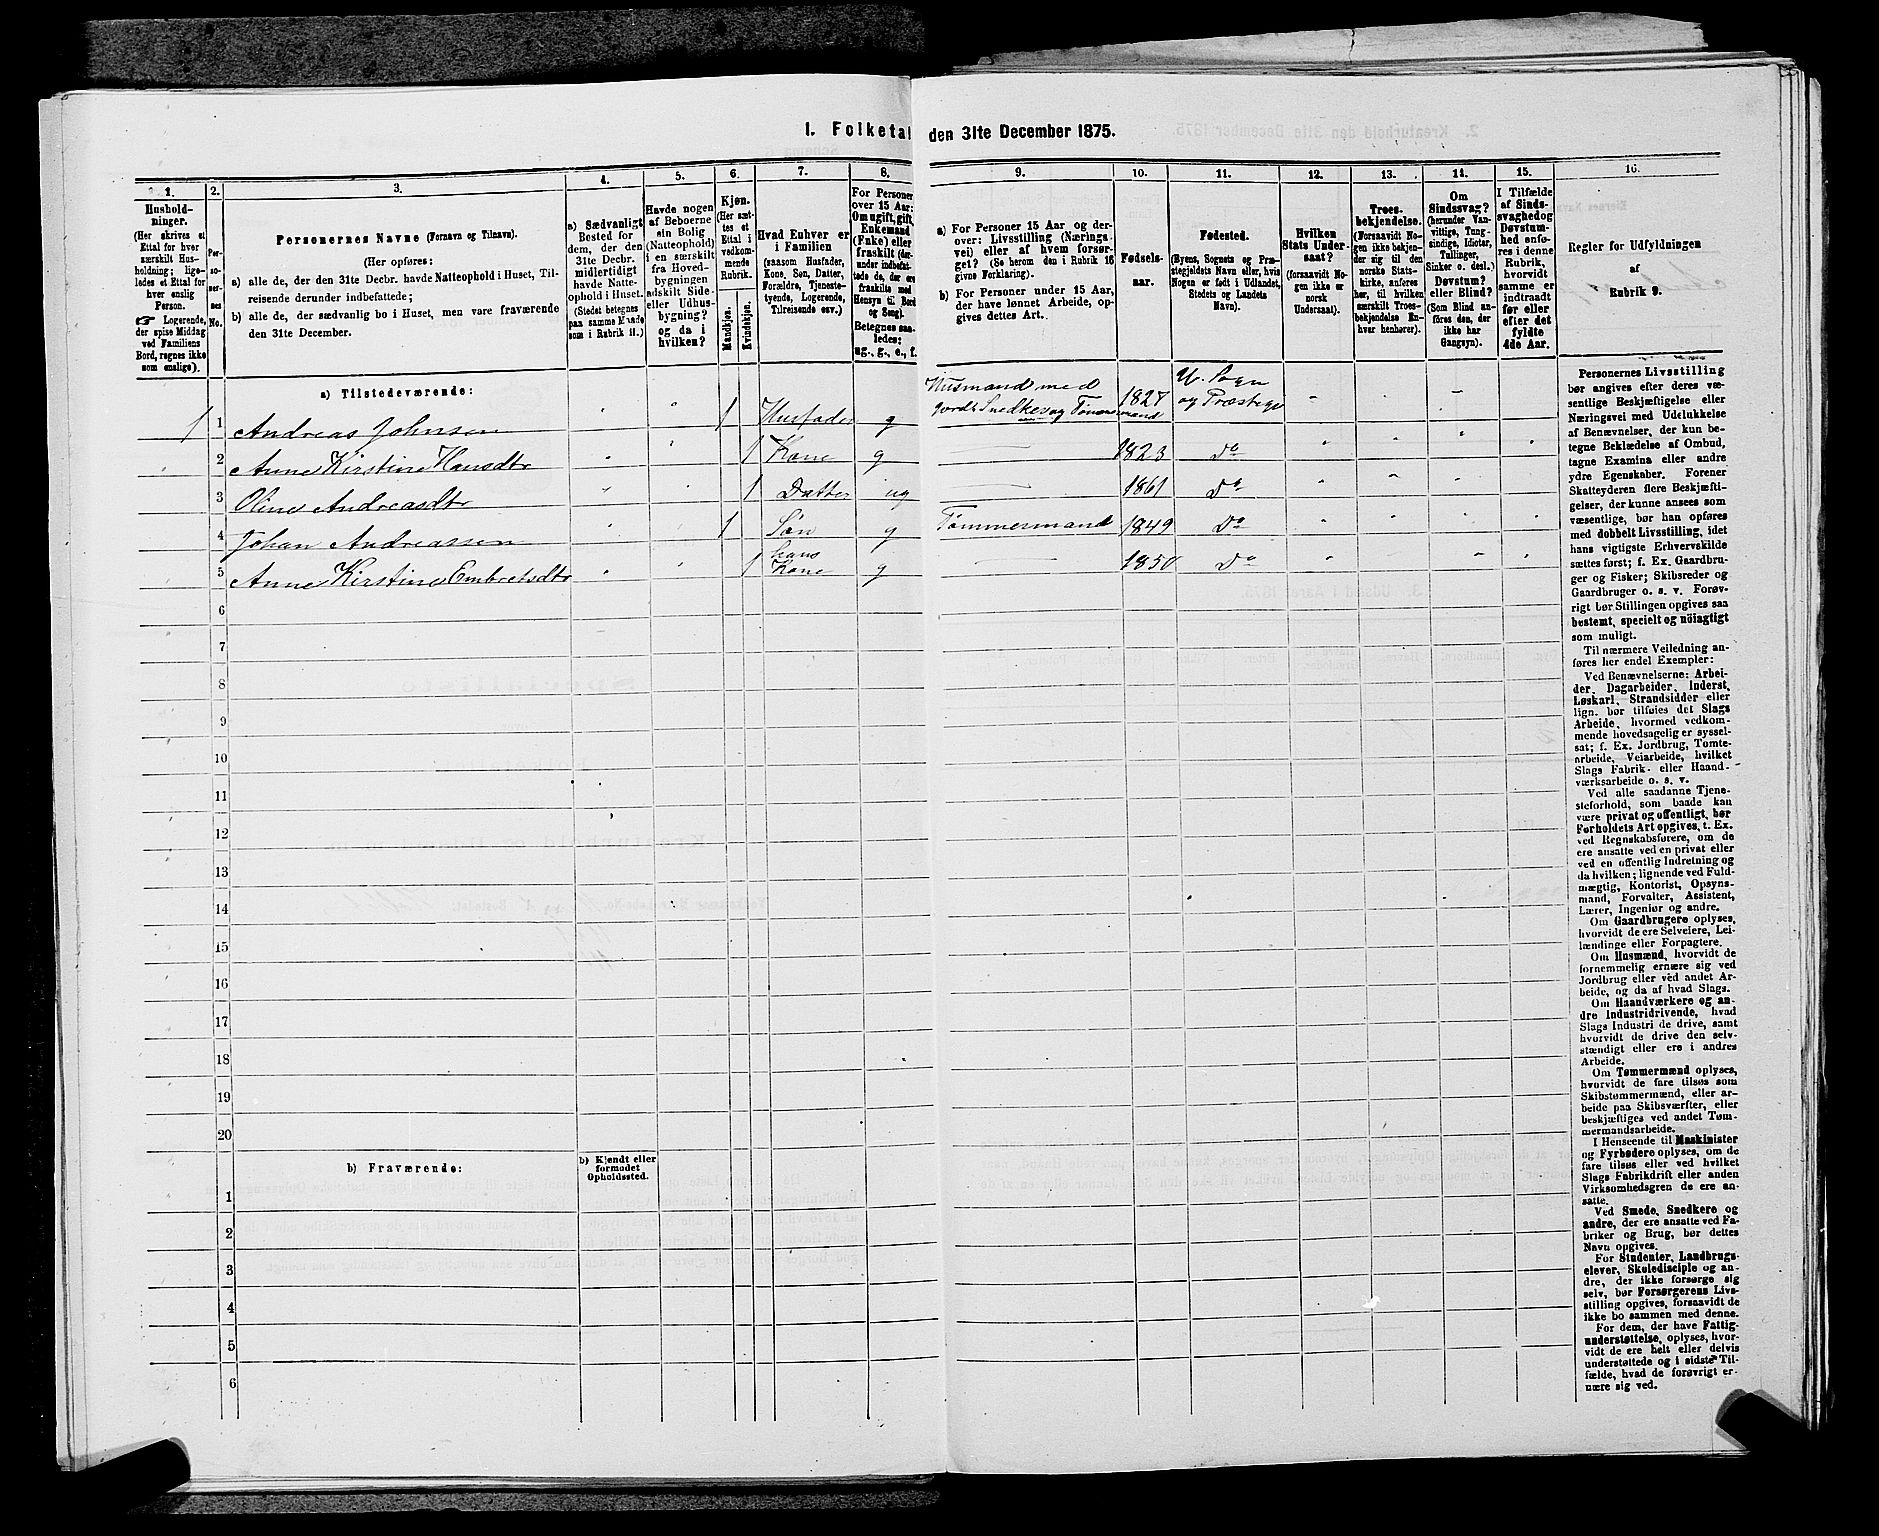 I. Folketal den 31te December 1875.
1. 2. 3. 4. 5. 6. 7. 8. 9. 10. 11. 12. 13. 14. 15. 16.
Hushold-
ninger.
(Her skrives et
Ettal for hver
særskilt Hus-
holdning; lige-
ledes et Ettal for
hver enslig
Person.
☞ Logerende,
der spise Middag
ved Familiens
Bord, regnes ikke
som enslige).
Per-
so-
ner-
nes
No.
Personernes Navne (Fornavn og Tilnavn).
(Her opføres:
a) alle de, der den 31te Decbr. havde Natteophold i Huset, Til-
reisende derunder indbefattede;
b) alle de, der sædvanlig bo i Huset, men vare fraværende
den 31te December.
a) Sædvanligt
Bosted for
dem, der den
31te Decbr.
midlertidigt
havde Natte-
ophold i Huset.
(Stedet betegnes
paa samme Maade
som i Rubrik 11.)
Havde nogen
af Beboerne
sin Bolig
(Natteophold)
i en særskilt
fra Hoved-
bygningen
adskilt Side-
eller Udhus-
bygning?
og da i
hvilken?
Kjøn.
(Her sæt-
tes et
Ettal i
vedkom-
mende
Rubrik.
Mandkjøn.
Kvindekjøn.
Hvad Enhver er
i Familien
(saasom Husfader,
Kone, Søn, Datter,
Forældre, Tjeneste-
tyende, Logerende,
Tilreisende osv.)
For Personer
over 15 Aar:
Om ugift, gift,
Enkemand
(Enke) eller
fraskilt (der-
under indbefat-
tede de, der ere
fraskilte med
Hensyn til Bord
og Seng).
Betegnes saa-
ledes:
ug., g., e., f.
a) For Personer 15 Aar og der-
over: Livsstilling (Nærings-
vei) eller af hvem forsør-
get? (Se herom den i Rubrik 16
givne Forklaring).
b) For Personer under 15 Aar,
der have lønnet Arbeide, op-
gives dettes Art.
Fødsels-
aar.
Fødested.
(Byens, Sognets og Præ-
stegjeldets Navn eller, hvis
Nogen er født i Udlandet,
Stedets og Landets
Navn).
Hvilken
Stats Under-
saat?
(forsaavidt No-
gen ikke er
norsk
Undersaat).
Troes-
bekjendelse.
(Forsaavidt No-
gen ikke bekjen-
der sig til den
norske Stats-
kirke, anføres
her, til hvilken
særskilt Troes-
bekjendelse En-
hver henhører).
Om
Sindssvag?
(herunder Van-
vittige, Tung-
sindige, Idioter,
Sinker o. desl.)
Døvstum?
eller Blind?
(Som Blind an-
føres den, der
ikke har
Gangsyn).
I Tilfælde
af Sinds-
svaghed og
Døvstum-
hed anfø-
res i denne
Rubrik,
hvorvidt
samme er
indtraadt
før eller
efter det
fyldte
4de Aar.
Regler for Udfyldningen
af
Rubrik 9.
a) Tilstedeværende:
1 1 Andreas Johnsen 1 Husfader g Husmand med
jord, Snedker og Tømmermand 1827 U. Sogn
og Præstegj
2 Anne Kirstine Hansdtr 1 Kone g 1823 Do
3 Oline Andreasdtr 1 Datter ug 1861 Do
4 Johan Andreassen 1 Søn g Tømmermand 1849 Do
5 Anne Kirstine Embretsdtr 1 hans
Kone g 1850 Do
6
7
8
9
10
11
12
13
14
15
16
17
18
19
20
b) Fraværende:
b) Kjendt eller
formodet
Opholdssted.
1
2
3
4
5
6
Personernes Livsstilling
bør angives efter deres væ-
sentlige Beskjæftigelse eller
Næringsvei med Udelukkelse
af Benævnelser, der kun be-
tegne Beklædelse af Ombud,
tagne Examina eller andre
ydre Egenskaber. Forener
Skatteyderen flere Beskjæfti-
gelser, der kunne ansees som
væsentlige, bør han opføres
med dobbelt Livsstilling, idet
hans vigtigste Erhvervskilde
sættes først; f. Ex. Gaardbru-
ger og Fisker; Skibsreder og
Gaardbruger o. s. v. Forøv-
rigt bør Stillingen opgives saa
bestemt, specielt og nöiagtigt
som muligt.
Til nærmere Veiledning an-
føres her endel Exempler:
Ved Benævnelserne: Arbei-
der, Dagarbeider, Inderst,
Løskarl, Strandsidder eller
lign. bør tilføies det Slags
Arbeide, hvormed vedkom-
mende hovedsagelig er syssel-
sat; f. Ex. Jordbrug, Tomte-
arbeide, Veiarbeide, hvilket
Slags Fabrik- eller Haand-
værksarbeide o. s. v.
Ved alle saadanne Tjene-
steforhold, som baade kan
være privat og offentligt, bør
Forholdets Art opgives, t. Ex.
ved Regnskabsførere, om de
ere ansatte ved en privat eller
ved en offentlig Indretning og
da hvilken; lignende ved Fuld-
mægtig, Kontorist, Opsyns-
mand, Forvalter, Assistent,
Lærer, Ingeniør og andre.
Om Gaardbrugere oplyses,
hvorvidt de ere Selveiere, Lei-
lændinge eller Forpagtere.
Om Husmænd, hvorvidt de
fornemmelig ernære sig ved
Jordbrug eller ved andet Ar-
beide, og da af hvad Slags.
Om Haandværkere og an-
dre Industridrivende, hvad
Slags Industri de drive, samt
hvorvidt de drive den selv-
stændigt eller ere i andres
Arbeide.
Om Tømmermænd oplyses,
hvorvidt de fare tilsøs som
Skibstømmermænd, eller ar-
beide paa Skibsværfter, eller
beskjæftiges ved andet Tøm-
mermandsarbeide.
I Henseende til Maskinister
og Fyrbødere oplyses, om de
fare tilsøs eller ved hvilket
Slags Fabrikdrift eller anden
Virksomhedsgren de ere an-
satte.
Ved Smede, Snedkere og
andre, der ere ansatte ved Fa-
briker og Brug, bør dettes
Navn opgives.
For Studenter, Landbrugs-
elever, Skoledisciple og an-
dre, der ikke forsørge sig
selv, bør Forsørgerens Livs-
stilling opgives, forsaavidt de
ikke bo sammen med denne.
For dem, der have Fattig-
understøttelse, oplyses, hvor-
vidt de ere helt eller delvis
understøttede og i sidste Til-
fælde, hvad de forøvrigt er-
nære sig ved.